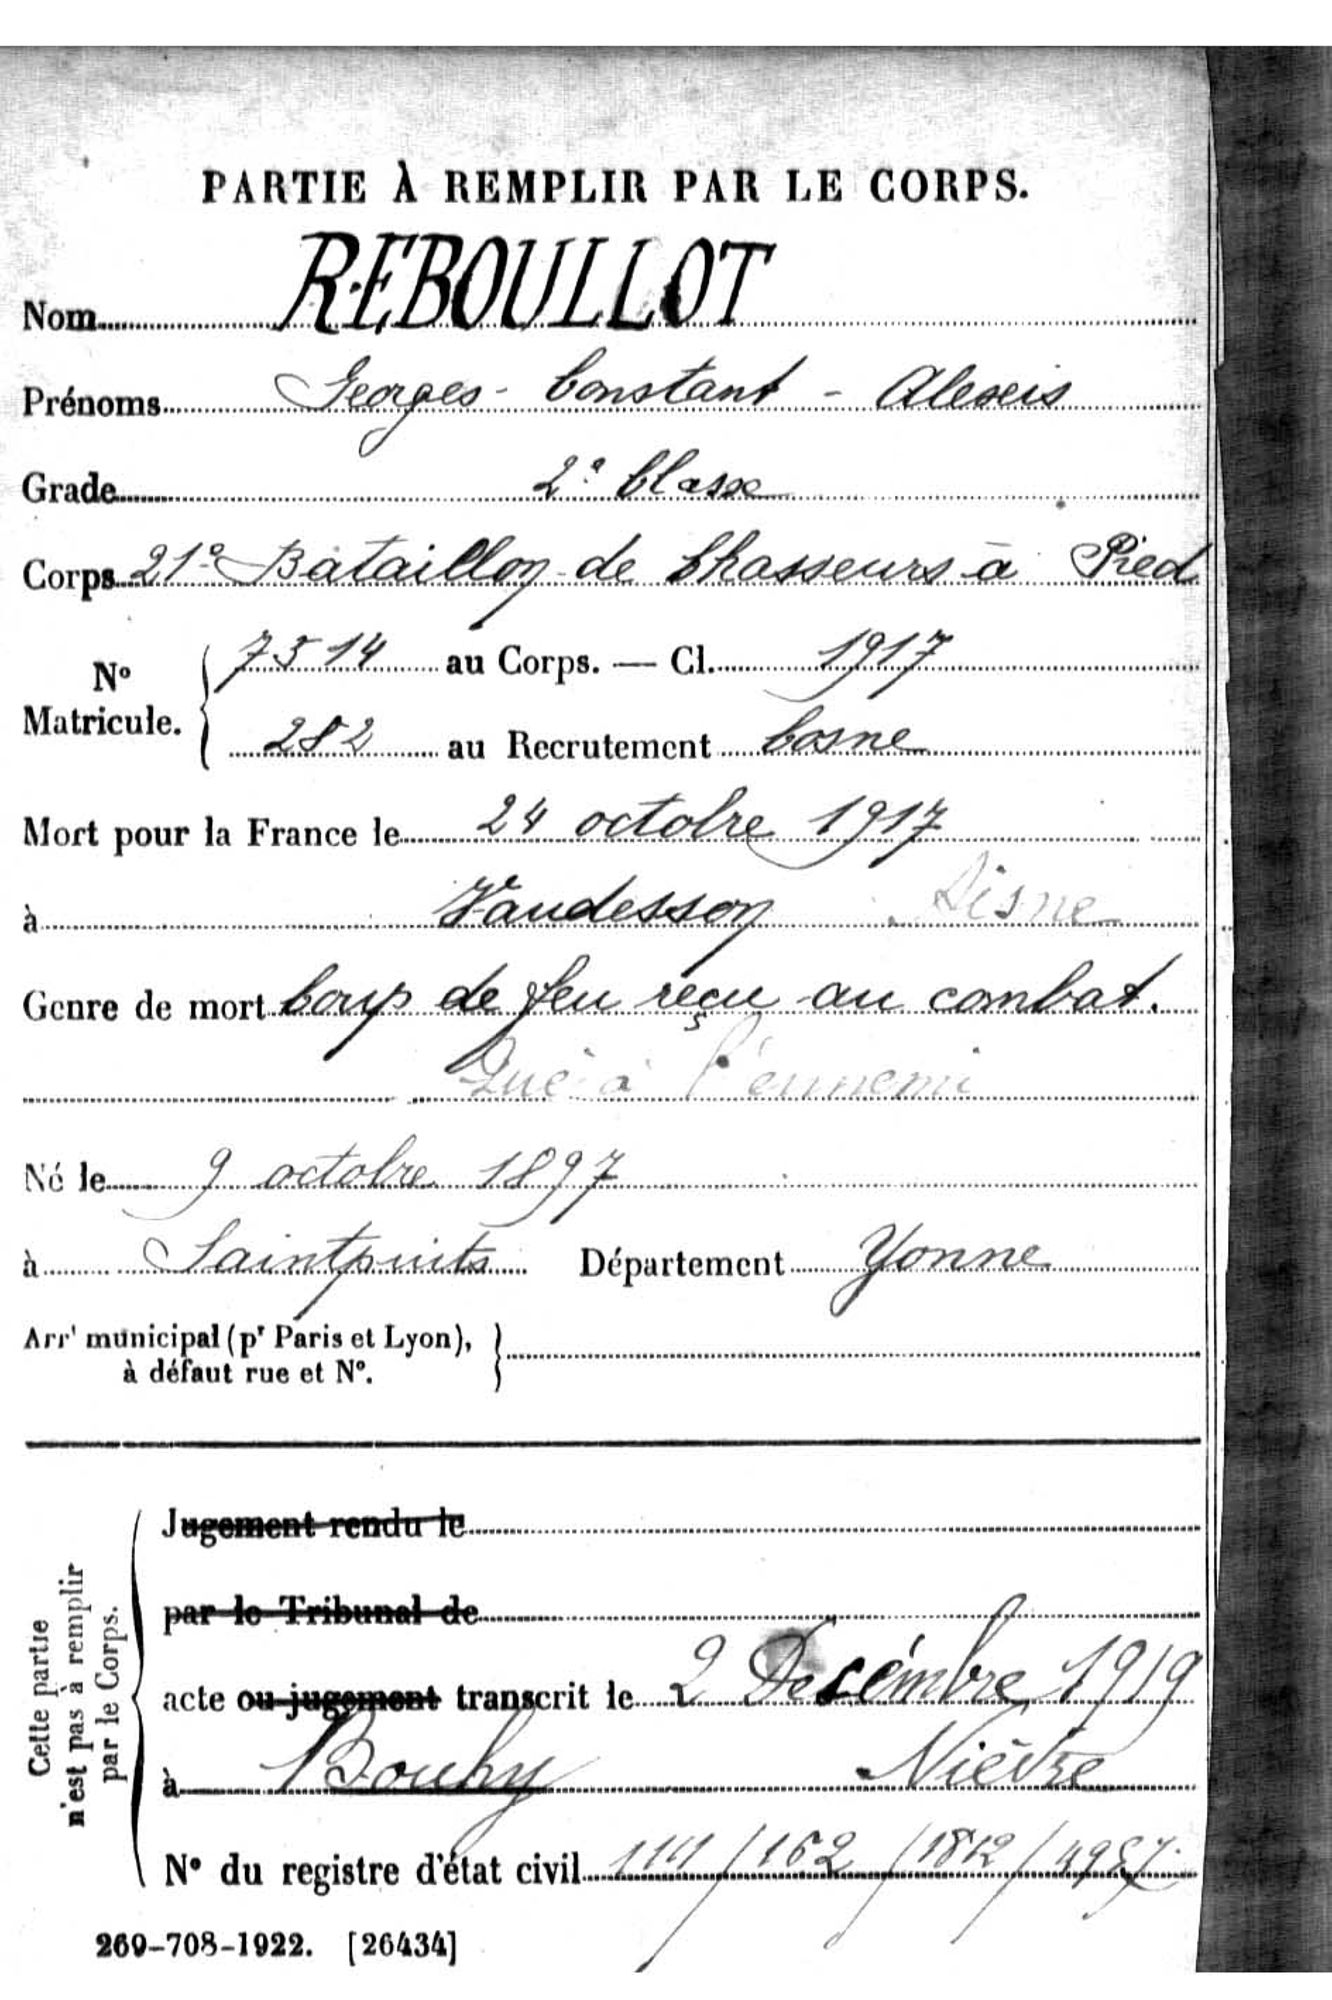 PARTIE À REMPLIR PAR LE CORPS.
Nom REBOULLOT
Prénoms Georges - Constant - Alexis
Grade 2e Classe
Corps 21e Bataillon de Chasseurs à Pied
N° Matricule. { 7514 au Corps. — Cl. 1917
282 au Recrutement Cosne
Mort pour la France le 24 octobre 1917
à Vaudesson Aisne
Genre de mort Coup de feu reçu au combat.
Tué à l'ennemi
Né le 9 octobre 1897
à Saintpuits Département Yonne
Arrt municipal (pr Paris et Lyon),
à défaut rue et N°.
Cette partie
n'est pas à remplir
par le Corps.
Jugement rendu le
par le Tribunal de
acte ou jugement transcrit le 2 Décembre 1919
à Bouhy Nièvre
N° du registre d'état civil 162 / 1812
269-708-1922. [26434]